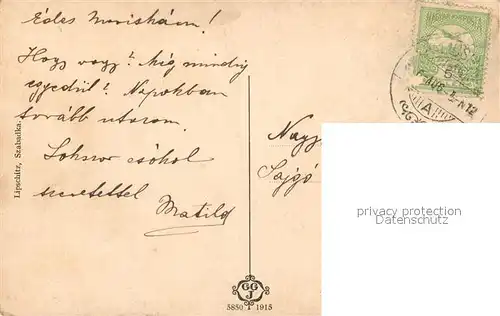 Édes Mariskám!
Hogy vagy? Még mindig
egyedül? Napokban
tovább utazom.
Sokszor csókol
szeretettel
Matild
Nagy
Sajgó
Lipschitz, Szabadka.
MAGYAR KIR. POSTA
privacy protection
Datenschutz
GG
J
5850 1915